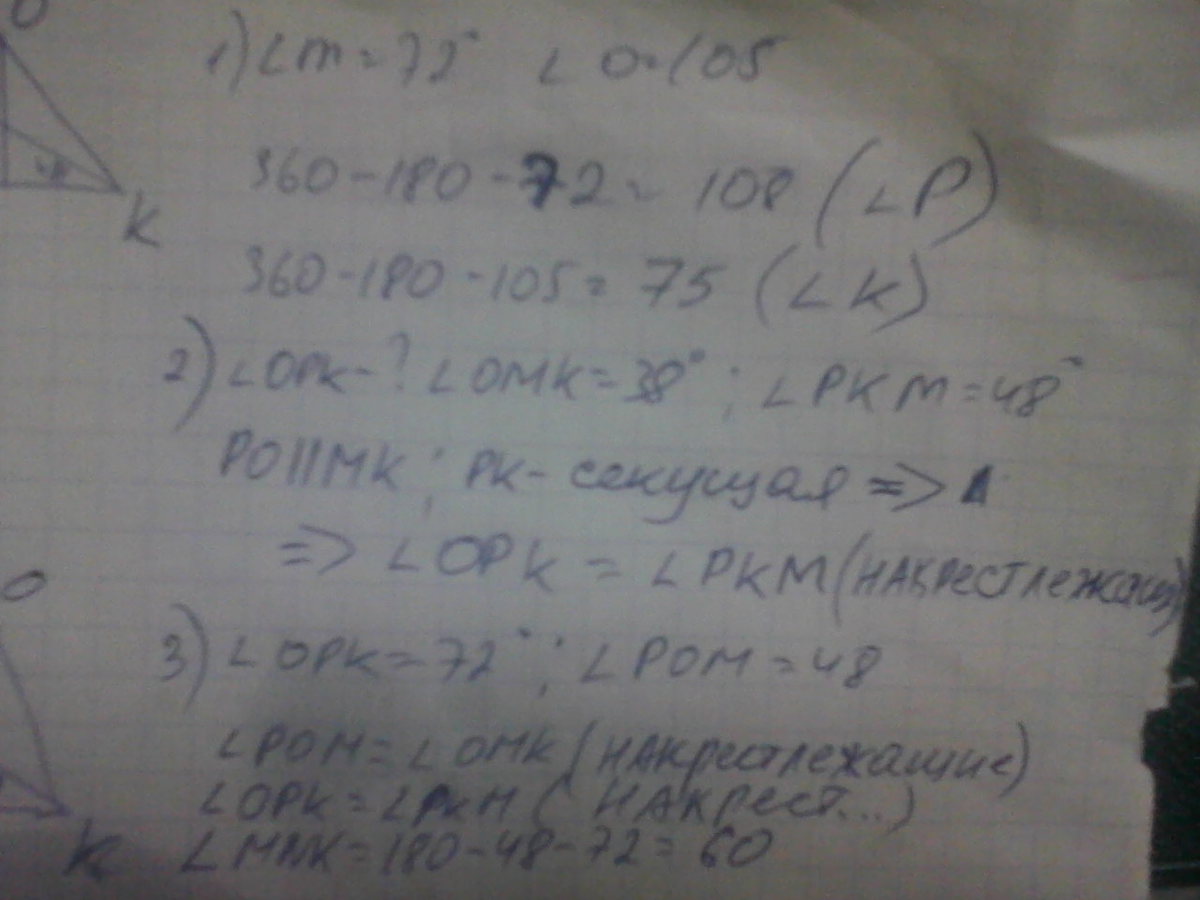 O
1) ∠m = 72° ∠O = 105
360 - 180 - 72 = 108 (∠P)
K
360 - 180 - 105 = 75 (∠K)
2) ∠OPK - ? ∠OMK = 38° ; ∠PKM = 48°
PO || MK ; PK - секущая =>
=> ∠OPK = ∠PKM (НАКРЕСТЛЕЖАЩ)
O
3) ∠OPK = 72° ; ∠POM = 48
∠POM = ∠OMK (НАКРЕСТЛЕЖАЩИЕ)
∠OPK = ∠PKM (НАКРЕСТ...)
K = 180 - 48 - 72 = 60